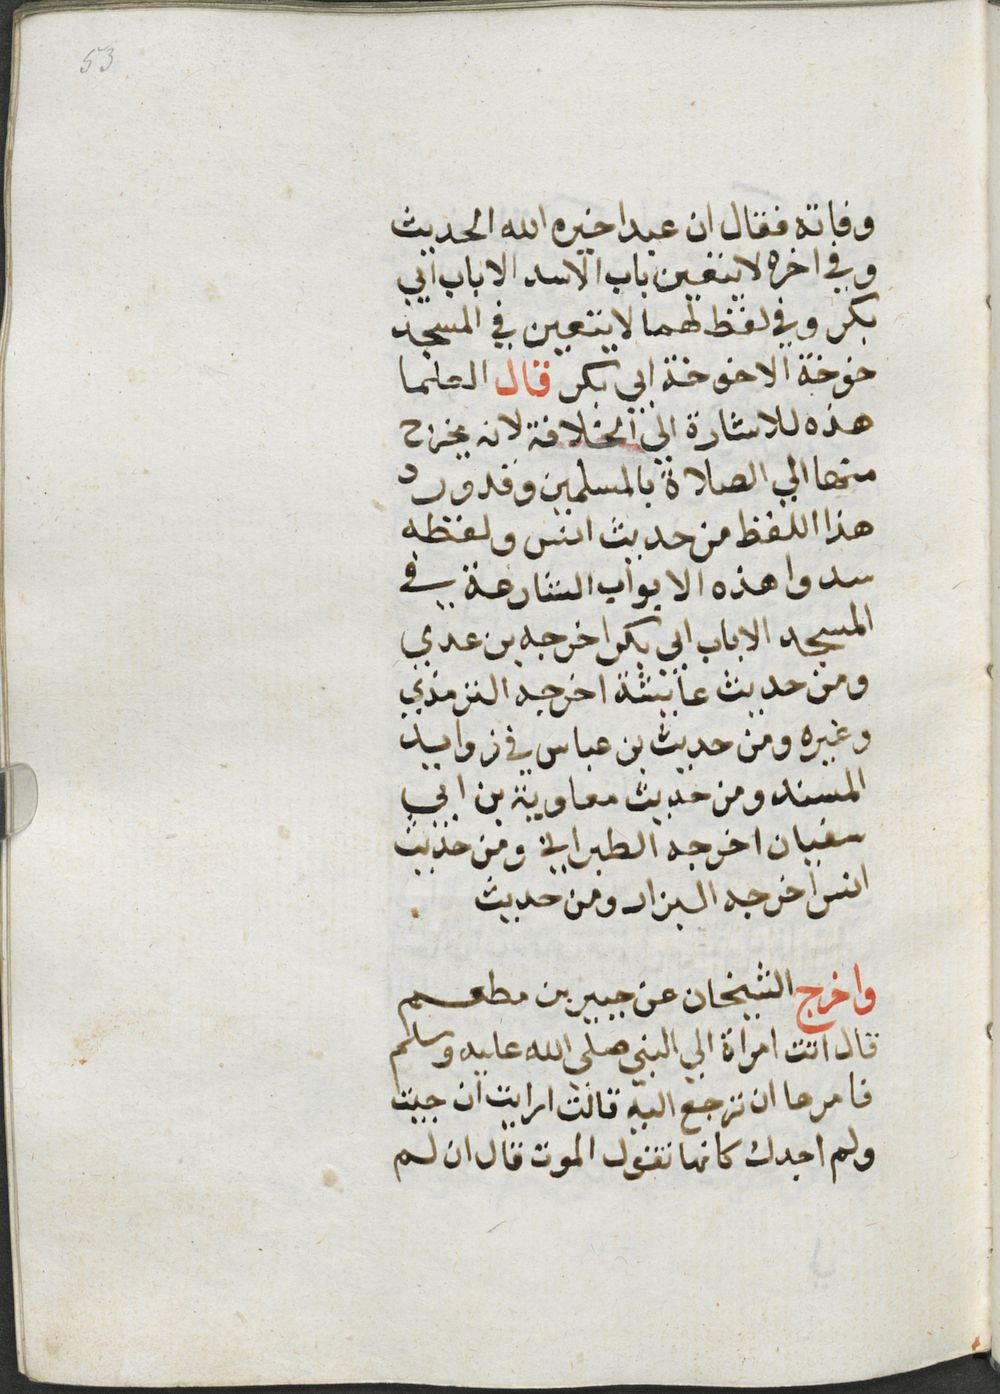 53
وفاته فقال ان عبدا خيره الله الحديث
وفي اخره لا يبقين باب الا سد الا باب ابي
بكر وفي لفظ لهما لا يبقين في المسجد
خوخة الا خوخة ابي بكر قال العلما
هذه للاشارة الي الخلافة لانه يخرج
منها الي الصلاة بالمسلمين وقد ورد
هذا اللفظ من حديث انس ولفظه
سدوا هذه الابواب الشارعة في
المسجد الا باب ابي بكر اخرجه بن عدي
ومن حديث عايشة اخرجه الترمذي
وغيره ومن حديث بن عباس في زوايد
المسند ومن حديث معاوية بن ابي
سفيان اخرجه الطبراني ومن حديث
انس اخرجه البزار ومن حديث
واخرج الشيخان عن جبير بن مطعم
قال اتت امراة الي النبي صلى الله عليه وسلم
فامرها ان ترجع اليه قالت ارايت ان جيت
ولم اجدك كانها تقول الموت قال ان لم